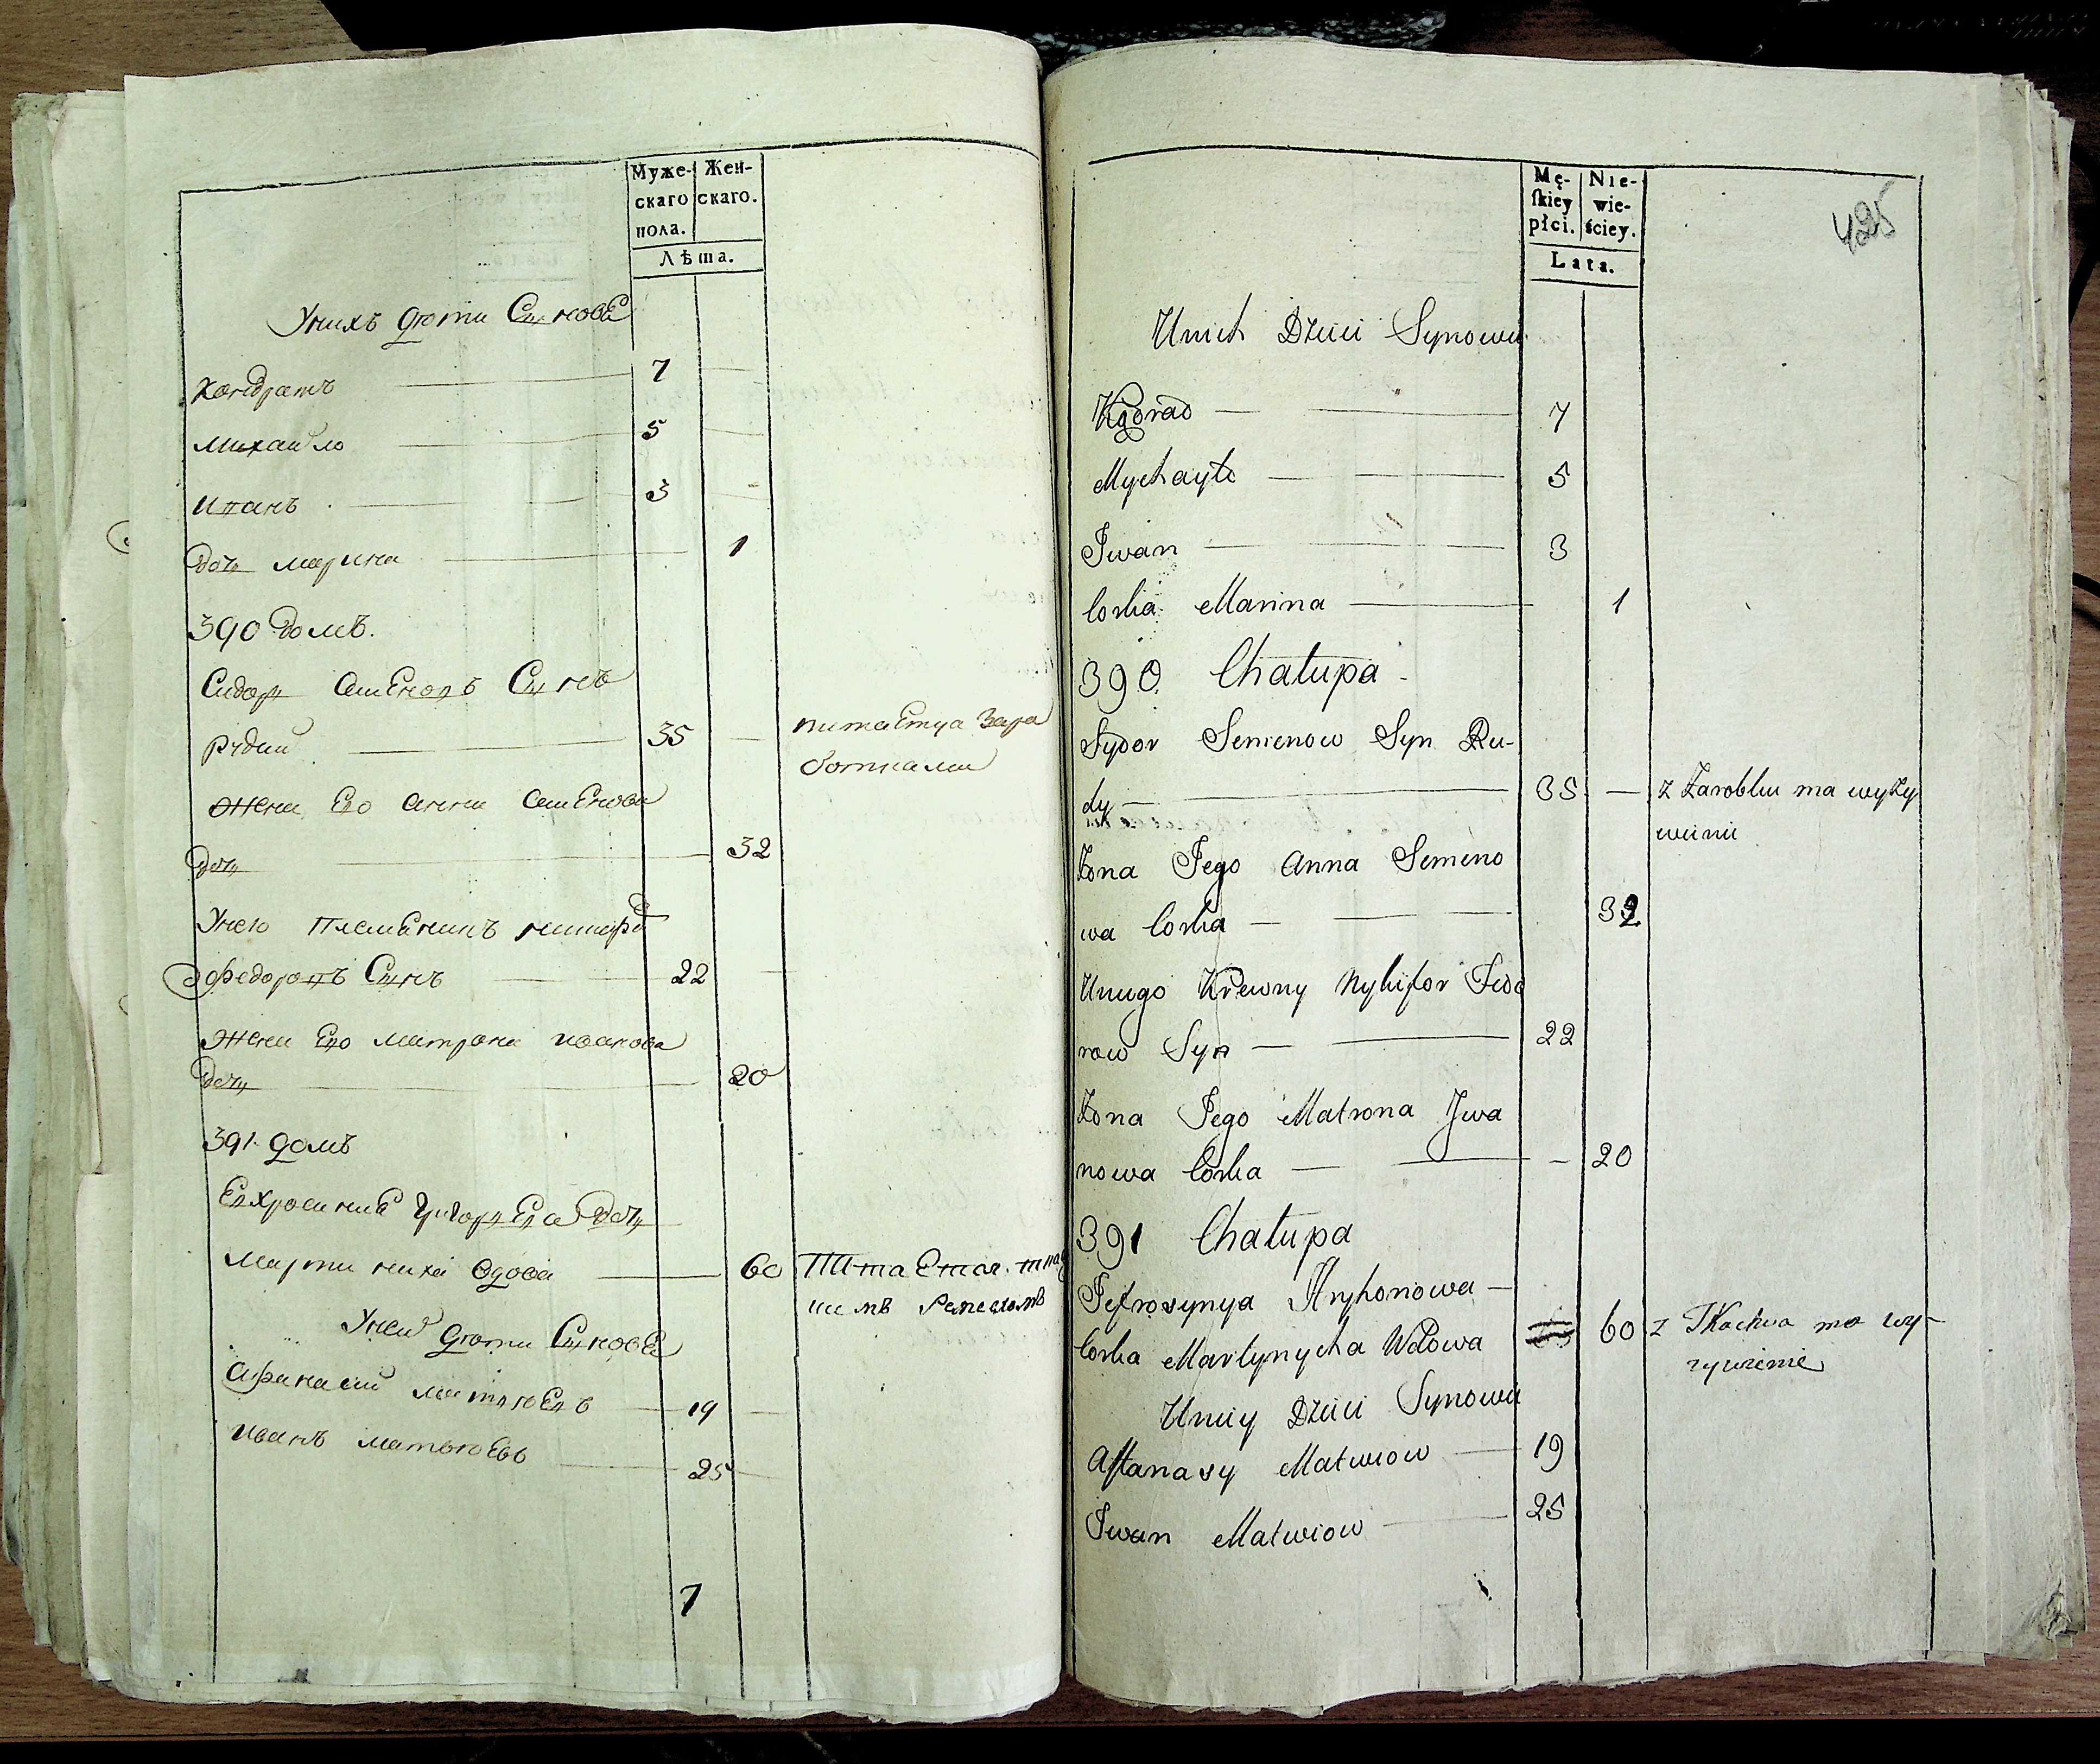 Муже-
скаго
пола.
Жен-
скаго.
Лѣта.
У нихъ дѣти Сынове
Кондратъ 7
михайло 5
Иванъ 3
дочь марина 1
390 домъ.
Сидоръ Семеновъ Сынъ
Рудий 35 питается зара
ботками
жена Его анна Семенова
дочь 32
У него племеникъ никифоръ
федоровъ Сынъ 22
жена Его матрона иванова
дочь 20
391. домъ
Евхросиние Григорьева дочь
мартиниха вдова 60 Питается ткац
кимъ ремесломъ
У ней дѣти Сынове
Афанасий матвѣевъ 19
иванъ матвѣевъ 25
7
Mę-
ſkiey
płci.
Nie-
wie-
ściey.
Lata.
425
Unich Dzieci Synowie
Kądrad 7
Mychayło 5
Jwan 3
Corka Marina 1
390. Chałupa
Sydor Semenow Syn Ru-
dy 35 z Zarobku ma wyży
wienie
Żona Jego Anna Semeno
wa Corka 32
Unego Krewny Nykifor Fedo
row Syn 22
Żona Jego Matrona Jwa
nowa Corka 20
391 Chałupa
Jefrosynya Hryhorowa
Corka Martynycha Wdowa 60 z Tkactwa ma wy-
zywienie
Uniey Dzieci Synowie
Aftanasy Matwiow 19
Jwan Matwiow 25